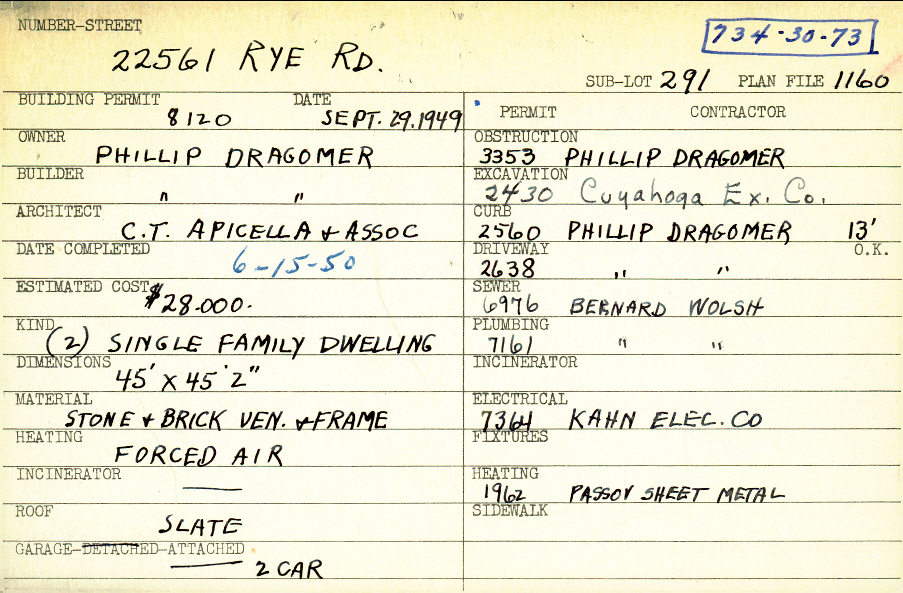 NUMBER-STREET
22561 RYE RD.
734-30-73
SUB-LOT 291 PLAN FILE 1160
BUILDING PERMIT DATE
8120 SEPT. 29.1949
OWNER
PHILLIP DRAGOMER
BUILDER
" "
ARCHITECT
C.T. APICELLA & ASSOC
DATE COMPLETED
6-15-50
ESTIMATED COST
$28.000.
KIND
(2) SINGLE FAMILY DWELLING
DIMENSIONS
45' X 45' 2"
MATERIAL
STONE & BRICK VEN. & FRAME
HEATING
FORCED AIR
INCINERATOR
—
ROOF
SLATE
GARAGE-DETACHED-ATTACHED
2 CAR
PERMIT CONTRACTOR
OBSTRUCTION
3353 PHILLIP DRAGOMER
EXCAVATION
2430 Cuyahoga Ex. Co.
CURB
2560 PHILLIP DRAGOMER 13'
DRIVEWAY O.K.
2638 " "
SEWER
6976 BERNARD WOLSH
PLUMBING
7161 " "
INCINERATOR
ELECTRICAL
7364 KAHN ELEC. CO
FIXTURES
HEATING
1962 PASSOV SHEET METAL
SIDEWALK